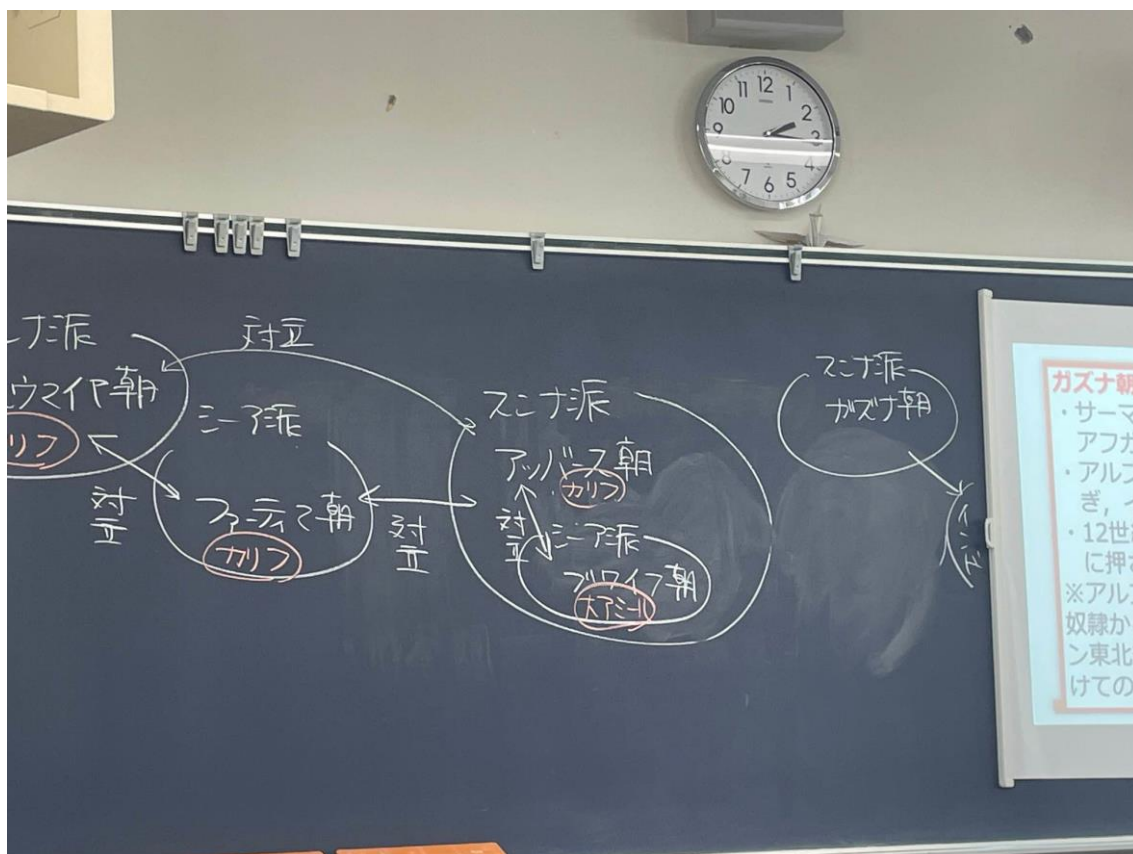 12
1
2
3
4
5
6
7
8
9
10
11
ナ派
ウマイヤ朝
リフ
対立
対立
シーア派
ファーティマ朝
カリフ
対立
スンナ派
アッバース朝
カリフ
対立
シーア派
ブワイフ朝
大アミール
スンナ派
ガズナ朝
インド
ガズナ朝
・サーマ
アフガ
・アルプ
ぎ，イ
・12世
に押さ
※アルプ
奴隷か
ン東北
けての